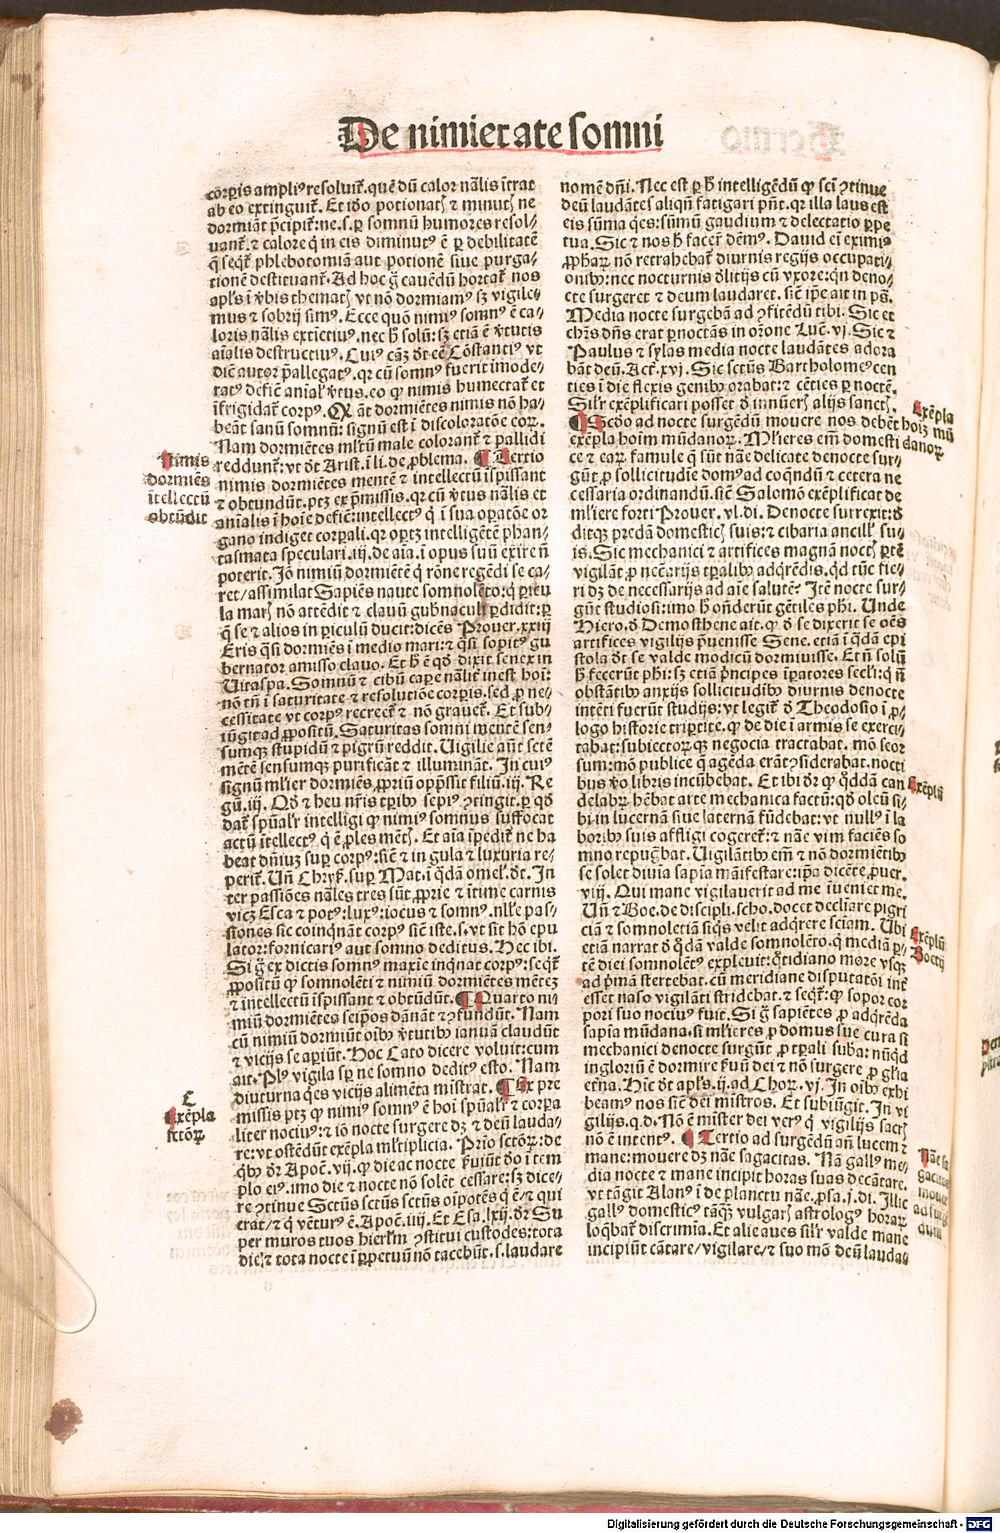 De nimietate somni
corꝑis ampliꝰ resoluit᷑. quē dū calor nālis ītrat
ab eo extinguit᷑. Et iō potionatꝭ ⁊ minutꝭ ne
dormiāt p̄cipit᷑: ne .s. ꝑ somnū humores resol⸗
uant᷑. ⁊ calore q̄ in eis diminutꝰ ē ꝑ debilitatē
q̄ seqt᷑ phlebotomiā aut potionē siue purga⸗
tionē destituant᷑. Ad hoc g̃ cauendū hortat᷑ nos
apl's ī ṽbis thematꝭ vt nō dormiamꝰ sꝫ vigile⸗
mus ⁊ sobrij simꝰ. Ecce quō nimiꝰ somnꝰ ē ca⸗
loris nālis extīctiuꝰ. nec ħ solū: sꝫ etiā ē ṽtutis
aīalis destructiuꝰ. Cuiꝰ cāꝫ dt̄ eē Cōstantiꝰ vt
dic̄ autor p̄allegatꝰ. qꝛ cū somnꝰ fuerit īmode⸗
ratꝰ defic̄ anial' ṽtus. eo ꝙ nimis humectat᷑ et
īfrigidat᷑ corpꝰ. Qd̄ āt dormiētes nimis nō ha⸗
beāt sanū somnū: signū est ī discoloratōe corꝑ.
Nam dormiētes ml'tū male colorant᷑ ⁊ pallidi
reddunt᷑: vt dt̄ Arist. ī li. de ꝓblema. ¶ Tertio
nimis dormiētes mentē ⁊ intellectū īspissant
⁊ obtundūt. ptꝫ ex p̄missis. qꝛ cū ṽtus nālis et
anīalis ī hoīe defic̄: intellectꝰ q̇ ī sua oꝑatōe or
gano indiget corꝑali. qꝛ oꝑtꝫ intelligētē phan⸗
tasmata speculari. iij. de aīa. ī opus suū exire n̄
poterit. Iō nimiū dormiētē q̇ rōne regēdi se ca⸗
ret / assimilat Sapiēs naute somnolēto: q̇ ꝑicu
la marꝭ nō attēdit ⁊ clauū gub̄naculi ꝑdidit: ꝑ
q̄ se ⁊ alios in ꝑiculū ducit: dicēs Prouer. xxiij
Eris q̄si dormiēs ī medio mari: ⁊ q̄si sopitꝰ gu
bernator amisso clauo. Et ħ ē qd̄ dixit senex in
Uitaspa. Somnū ⁊ cibū caꝑe nālit᷑ inest hoī:
nō tn̄ ī saturitate ⁊ resolutiōe corꝑis. sed ꝓ ne⸗
cessitate vt corpꝰ recreet᷑ ⁊ nō grauet᷑. Et sub⸗
iūgit ad ꝓpositū. Saturitas somni mentē sen⸗
sumqꝫ stupidū ⁊ pigrū reddit. Uigilie aūt sctē
mētē sensumqꝫ purificāt ⁊ illumināt. In cuiꝰ
signū ml'ier dormiēs ꝓpriū opp̄ssit filiū. iij. Re
gū. iij. Qd̄ ⁊ heu nr̄is tꝑibꝰ sepiꝰ ꝯtingit. ꝑ qd̄
dat᷑ sp̄ual'r intelligi ꝙ nimiꝰ somnus suffocat
actū ītellectꝰ q̇ ē ꝓles mētꝭ. Et aīa īpedit᷑ ne ha
beat dn̄iuꝫ suꝑ corpꝰ: sic̄ ⁊ in gula ⁊ luxuria re⸗
perit᷑. Un̄ Chrys̃. suꝑ Mat. ī q̇dā omel'. dt̄. In
ter passiōes nāles tres sūt ꝓprie ⁊ ītime carnis
vicꝫ Esca ⁊ potꝰ: luxꝰ: iocus ⁊ somnꝰ. nll'e pas⸗
siones sic coinq̇nāt corpꝰ sic̄ iste. s. vt sit hō epu
lator: fornicariꝰ aut somno deditus. Hec ibi.
Si g̃ ex dictis somnꝰ maxīe inq̇nat corpꝰ: seqt᷑
ꝓpositū ꝙ somnolēti ⁊ nimiū dormiētes mētez
⁊ intellectū īspissant ⁊ obtūdūt. ¶ Quarto ni⸗
miū dormiētes seip̄os dānāt ⁊ ꝯfundūt. Nam
cū nimiū dormiūt oībꝰ ṽtutibꝰ ianuā claudūt
⁊ vicijs se aꝑiūt. Hoc Cato dicere voluit: cum
ait. Plꝰ vigila sꝑ ne somno deditꝰ esto. Nam
diuturna q̇es vicijs alimēta mistrat. ¶ Ex pre
missis ptꝫ ꝙ nimiꝰ somnꝰ ē hoī sp̄ual'r ⁊ corꝑa
liter nociuꝰ: ⁊ iō nocte surgere dꝫ ⁊ deū lauda⸗
re: vt ostēdūt exēpla ml'tiplicia. Prīo sctōꝝ: de
q̇bꝰ dr̄ Apoč. vij. ꝙ die ac nocte ẜuiūt dō ī tem
plo eiꝰ. imo die ⁊ nocte nō solēt cessare: sꝫ dice⸗
re ꝯtinue Sctūs sctūs sctūs oīpotēs q̇ ē / ⁊ qui
erat / ⁊ q̇ vēturꝰ ē. Apoč. iiij. Et Esa. lxij. dr̄ Su
per muros tuos hierl'm ꝯstitui custodes: tota
die / ⁊ tota nocte ī ꝑpetuū nō tacebūt. s. laudare
Nimis
dormiēs
ītellectū
obtūdit
C
Exēpla
sctōꝝ
nomē dn̄i. Nec est ꝑ ħ intelligēdū ꝙ scī ꝯtinue
deū laudātes aliqn̄ fatigari pn̄t. qꝛ illa laus est
eis sūma q̇es: sūmū gaudium ⁊ delectatio ꝑpe
tua. Sic ⁊ nos ħ facer̄ dēmꝰ. Dauid ei᷑ eximiꝰ
ꝓphaꝝ nō retrahebat᷑ diurnis regijs occupati⸗
onibꝰ: nec nocturnis dl'itijs cū vxore: qn̄ deno⸗
cte surgeret ⁊ deum laudaret. sic̄ ip̄e ait in ps̄.
Media nocte surgebā ad ꝯfitēdū tibi. Sic et
chr̄s dn̄s erat ꝑnoctās in or̄one Luč. vj. Sic ⁊
Paulus ⁊ sylas media nocte laudātes adora
bāt deū. Act̄. xvj. Sic sctūs Bartholomeꝰ cen
ties ī die flexis genibꝰ orabat: ⁊ cēties ꝑ noctē.
Sil'r exēplificari posset d̄ innūerꝭ alijs sanctꝭ.
¶ Scd̄o ad nocte surgēdū mouere nos debēt
exēpla hoīm mūdanoꝝ. Ml'ieres em̄ domesti
ce ⁊ eaꝝ famule q̄ sūt nāe delicate denocte sur⸗
gūt ꝓ sollicitudīe domꝰ ad coq̄ndū ⁊ cetera ne
cessaria ordinandū. sic̄ Salomō exēplificat de
ml'iere forti Prouer. vl. di. De nocte surrexit: d̄
ditqꝫ predā domesticꝭ suis: ⁊ cibaria ancill' su⸗
is. Sic mechanici ⁊ artifices magnā noctꝭ ꝑtē
vigilāt ꝓ nec̄arijs tꝑalibꝰ adq̇rēdis. qd̄ tūc fie⸗
ri dꝫ de necessarijs ad aīe salutē? Itē nocte sur⸗
gūt studiosi: imo ħ on̄derūt gētiles phi. Unde
Hiero. d̄ Demosthene ait. ꝙ d̄ se dixerit se oēs
artifices vigilijs p̄uenisse Sene. etiā ī q̇dā epi
stola dt̄ se valde modicū dormiuisse. Et n̄ solū
ħ fecerūt phi: sꝫ etiā p̄ncipes īꝑatores secl'i: q̇ n̄
obstātibꝰ anxijs sollicitudībꝰ diurnis denocte
intēti fuerūt studijs: vt legit᷑ d̄ Theodosio ī ꝓ⸗
logo historie triꝑtite. ꝙ de die ī armis se exerci⸗
tabat: subiectoꝝqꝫ negocia tractabat. mō seor
sum: mō publice q̄ agēda erāt ꝯsiderabat. nocti
bus v̄o libris incūbebat. Et ibi dr̄ ꝙ qd̄dā can
delabꝝ hēbat arte mechanica factū: qd̄ oleū si⸗
bi in lucernā siue laternā fūdebat: vt nullꝰ ī la
boribꝰ suis affligi cogeret᷑: ⁊ nāe vim faciēs so
mno repugbat. Uigilātibꝰ em̄ ⁊ nō dormiētibꝰ
se solet diuīa sapīa māifestare: ip̄a dicēte ꝓuer.
viij. Qui mane vigilauerit ad me īueniet me.
Un̄ ⁊ Boe. de discipli. scho. docet decliare pigri
ciā ⁊ somnolētiā siq̇s velit adq̇rere sciam. Ubi
etiā narrat d̄ q̇dā valde somnolēto. q̇ mediā ꝑ⸗
tē diei somnolētꝰ expleuit: q̄tidiano more vsqꝫ
ad p̄mā stertebat. cū meridiane disputatōi int̄
esset naso vigilāti stridebat. ⁊ seqt᷑: ꝙ sopor cor
pori suo nociuꝰ fuit. Si g̃ sapiētes ꝓ adq̇rēda
sapīa mūdana. si ml'ieres ꝓ domus sue cura si
mechanici denocte surgūt ꝓ tꝑali suba: nūqd̄
ingloriū ē dormire ẜuū dei ⁊ nō surgere ꝓ gl'ia
et̄na. Hic̄ dt̄ apl's. ij. ad Choꝝ. vj. In oībꝰ exhi
beamꝰ nos sic̄ dei mīstros. Et subiūgit. In vi
gilijs. q. d. Nō ē mister dei verꝰ q̇ vigilijs sacꝭ
nō ē intentꝰ. ¶ Tertio ad surgēdū an̄ lucem ⁊
mane: mouere dꝫ nāe sagacitas. Nā gallꝰ me⸗
dia nocte ⁊ mane incipit horas suas decātare.
vt tāgit Alanꝰ ī de planctu nāe. ꝓsa. j. di. Illic
gallꝰ domesticꝰ tāqꝫ vulgarꝭ astrologꝰ horaꝝ
loq̄bat᷑ discrimīa. Et alie aues sil'r valde mane
incipiūt cātare / vigilare / ⁊ suo mō deū lauda⸗
Exēpla
hoīꝫ mū
danoꝝ
Exēplū
Exēplū
Boetij
Nāe sa
gacitas
mouet
ad surgē
dum
Digitalisierung gefördert durch die Deutsche Forschungsgemeinschaft - DFG